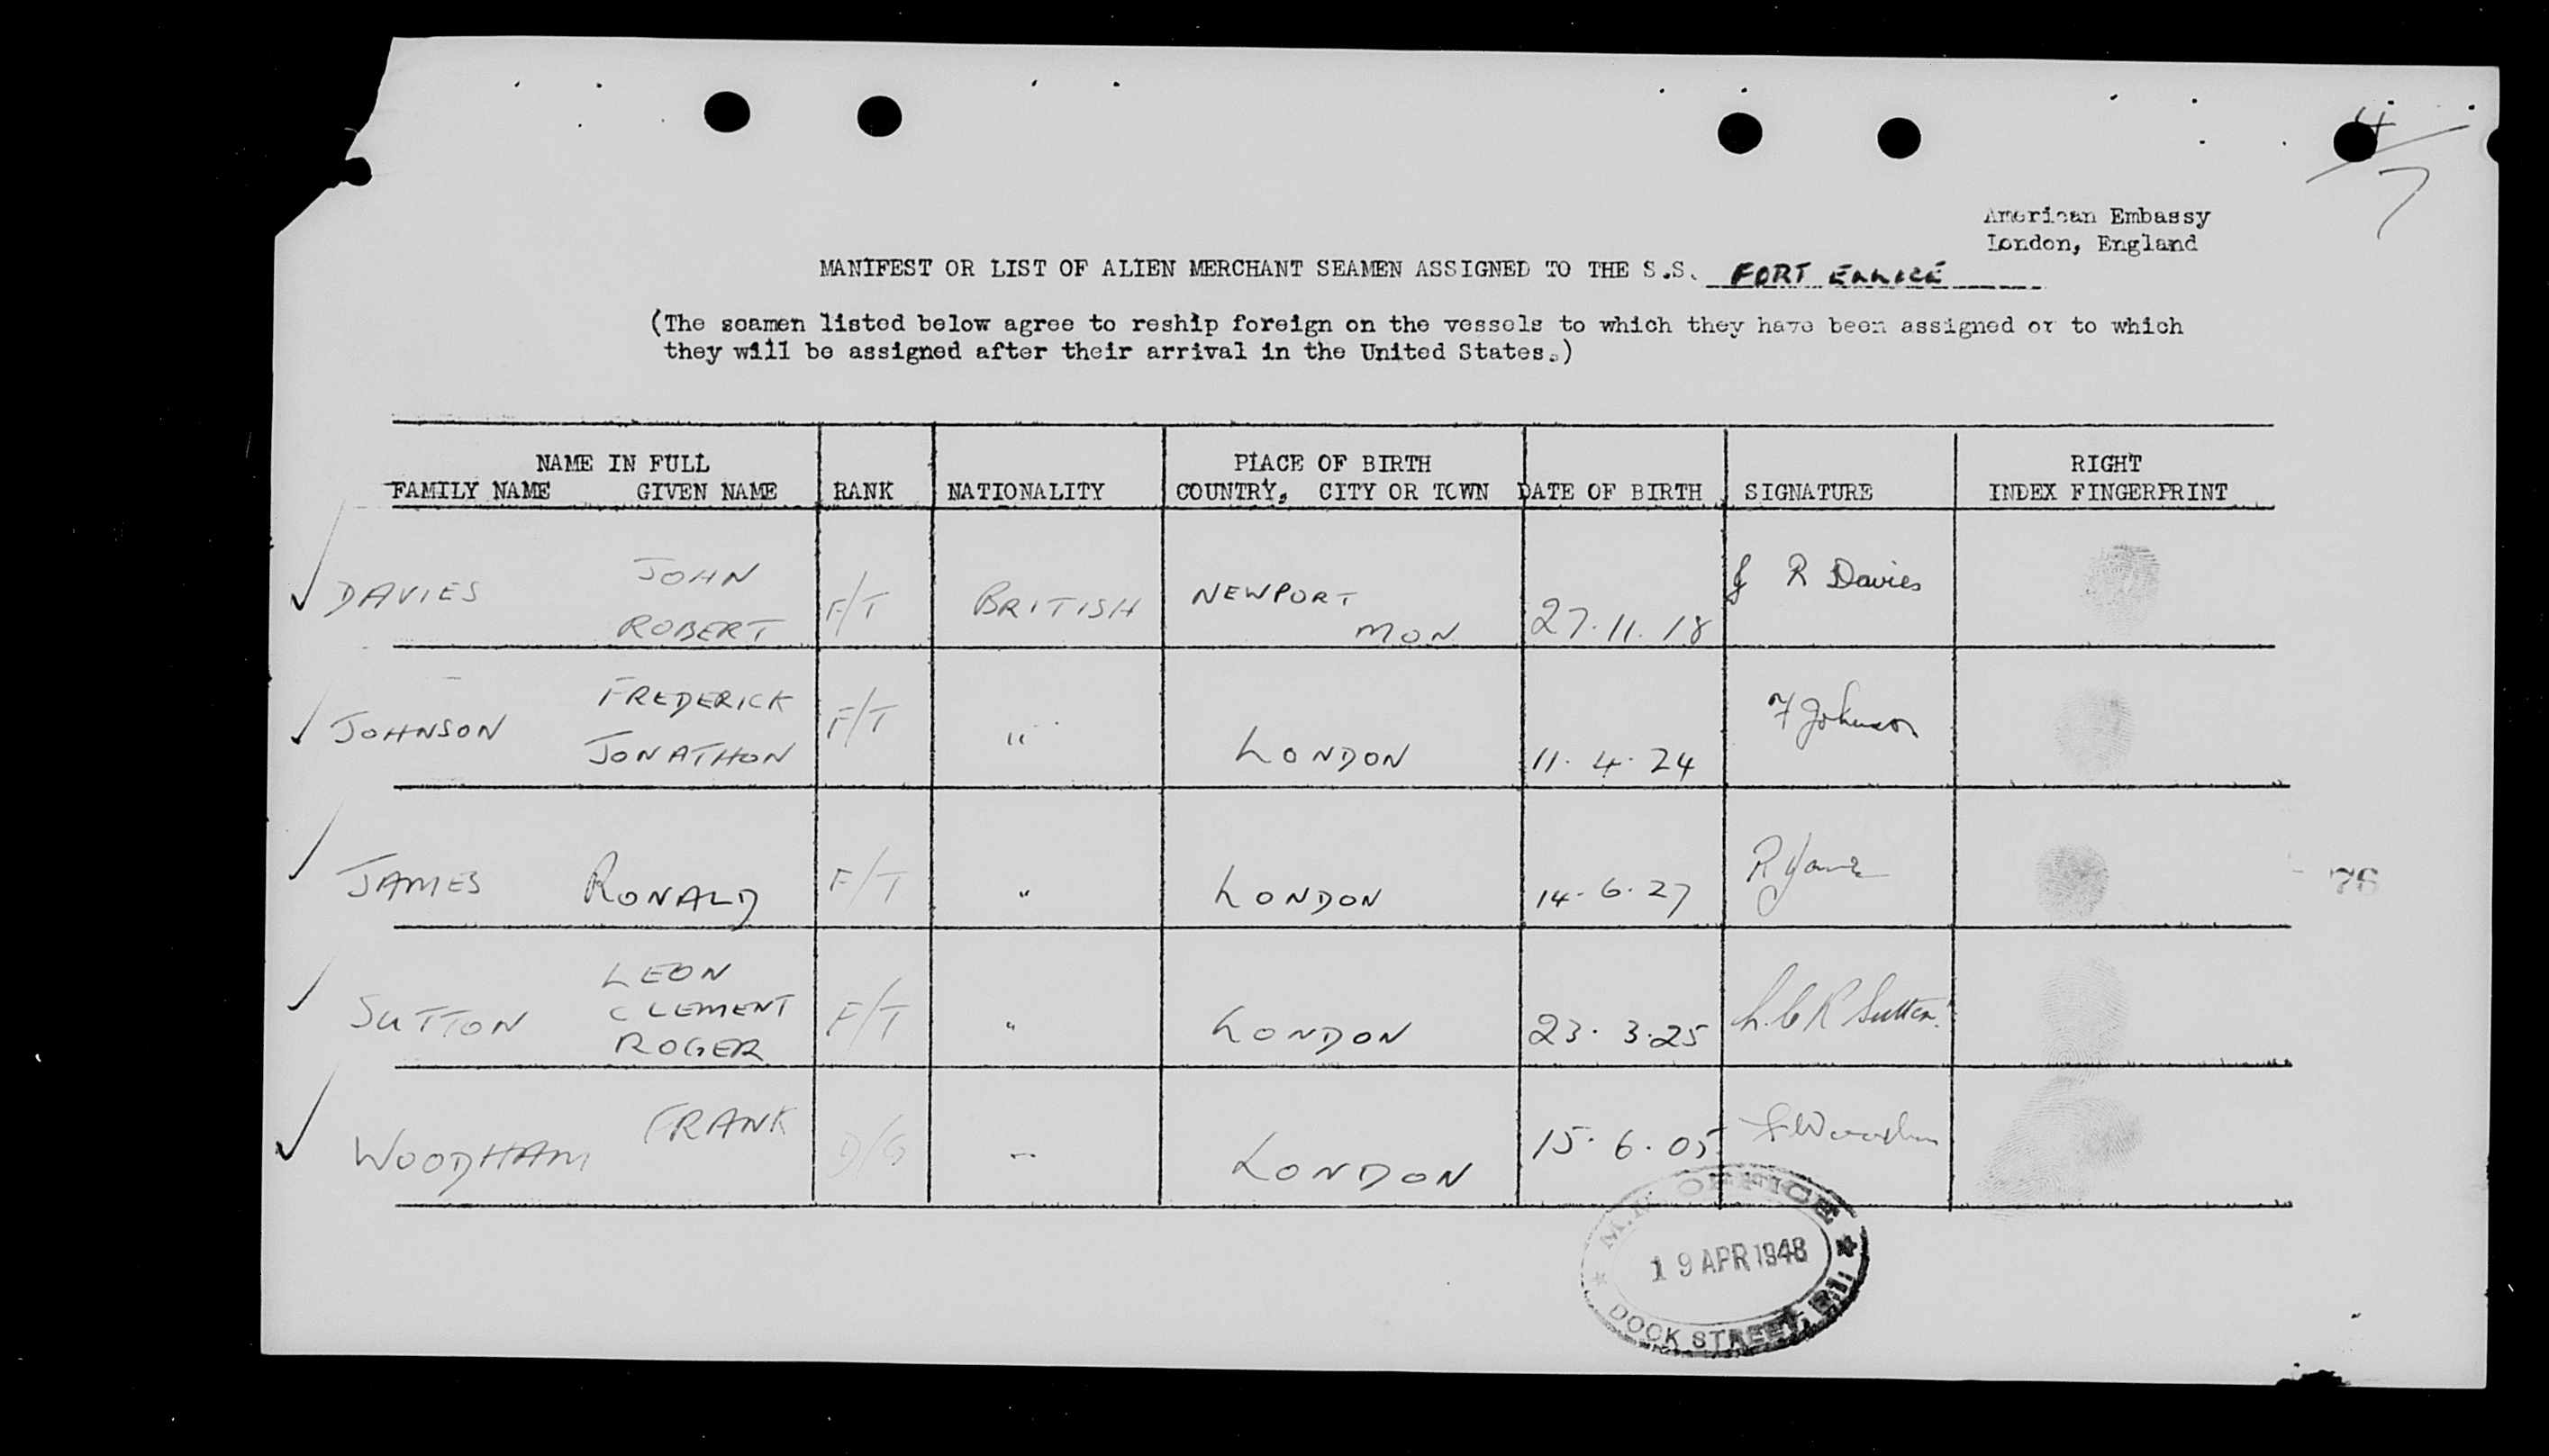 4/7
American Embassy
London, England
MANIFEST OR LIST OF ALIEN MERCHANT SEAMEN ASSIGNED TO THE S.S. FORT
(The seamen listed below agree to reship foreign on the vessels to which they have been assigned or to which
they will be assigned after their arrival in the United States.)
NAME IN FULL PLACE OF BIRTH RIGHT
FAMILY NAME GIVEN NAME RANK NATIONALITY COUNTRY, CITY OR TOWN DATE OF BIRTH SIGNATURE INDEX FINGERPRINT
JOHN
DAVIES F/T BRITISH NEWPORT J R Davies
ROBERT MON 27.11.18
FREDERICK
JOHNSON F/T " F Johnson
JONATHON LONDON 11.4.24
JAMES RONALD F/T " LONDON 14.6.27 R James
76
LEON
CLEMENT
SUTTON F/T " LONDON 23.3.25 L.C R Sutton
ROGER
FRANK
WOODHAM D/G " LONDON 15.6.05 F Woodham
M.N. OFFICE
19 APR 1948
DOCK STREET, E.1.